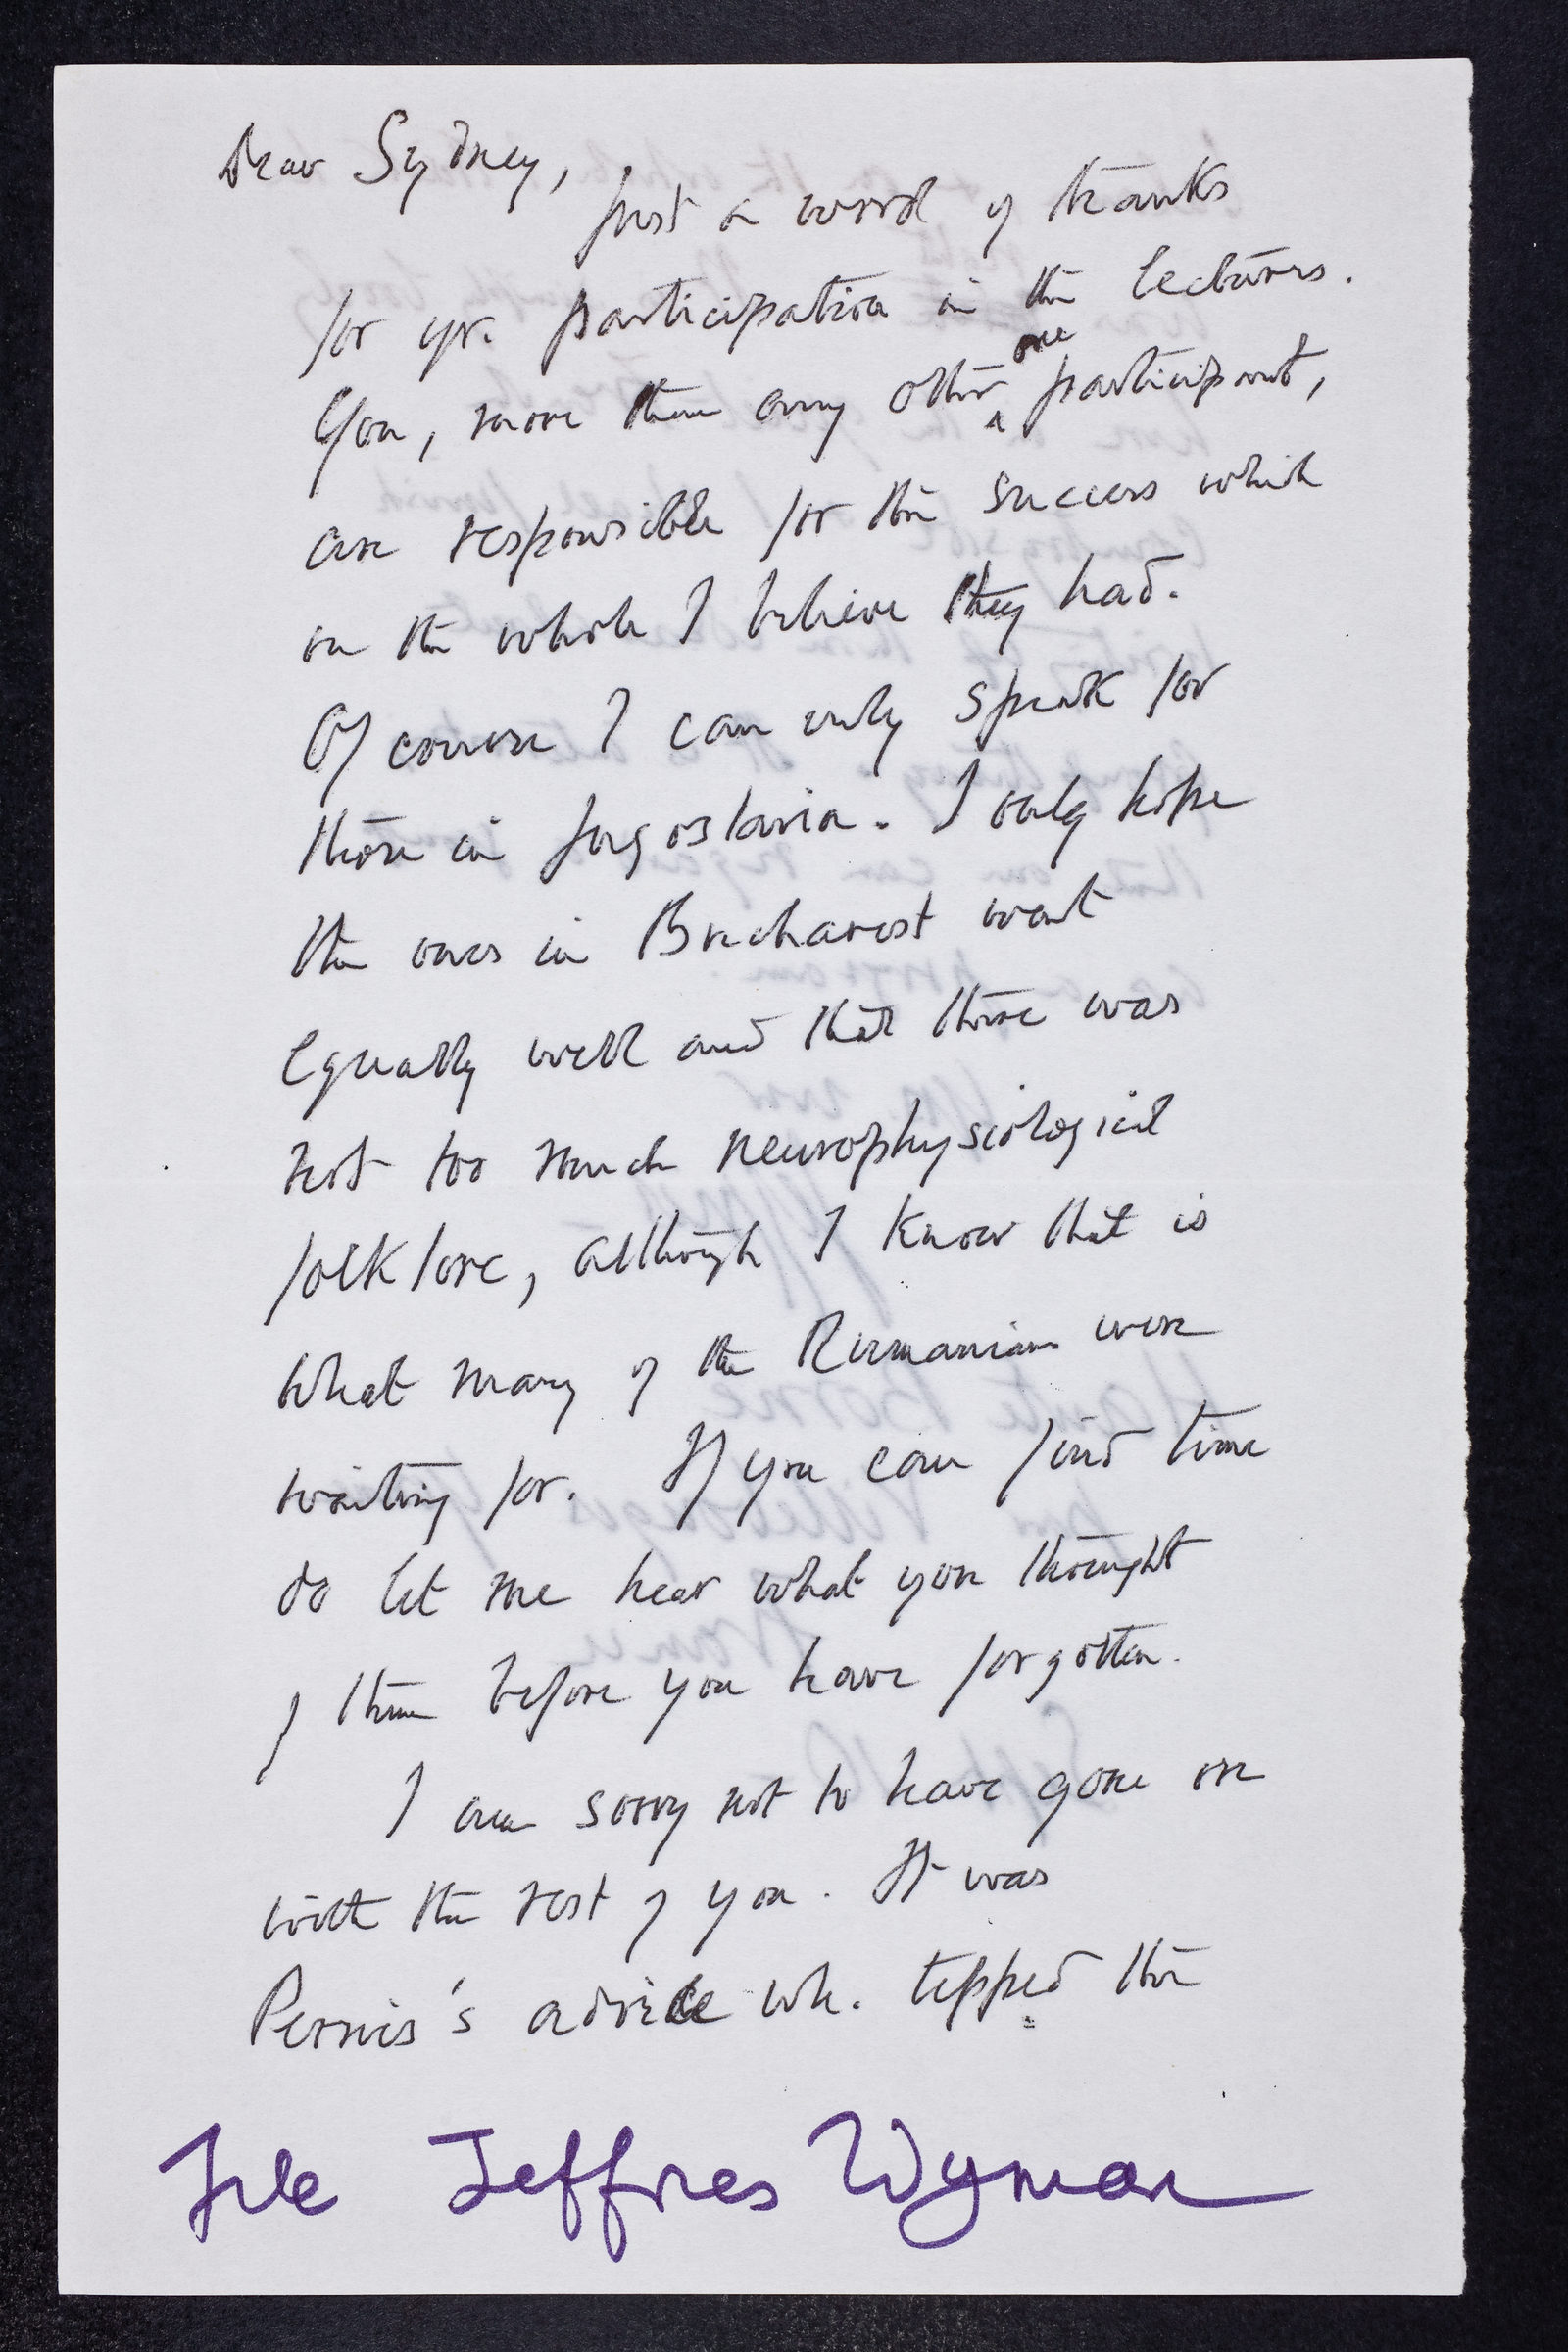 Dear Sydney,
Just a word of thanks
for yr. participation in the lectures.
You, more than any other one participant,
are responsible for the success which
on the whole I believe they had.
Of course I can only speak for
those in Jugoslavia. I only hope
the ones in Bucharest went
equally well and that there was
not too much neurophysiological
folklore, although I know that is
what many of the Rumanians were
waiting for. If you can find time
do let me hear what you thought
of them before you have forgotten.
I am sorry not to have gone on
with the rest of you. It was
Pernis's advice wh. tipped the
File Jeffries Wyman